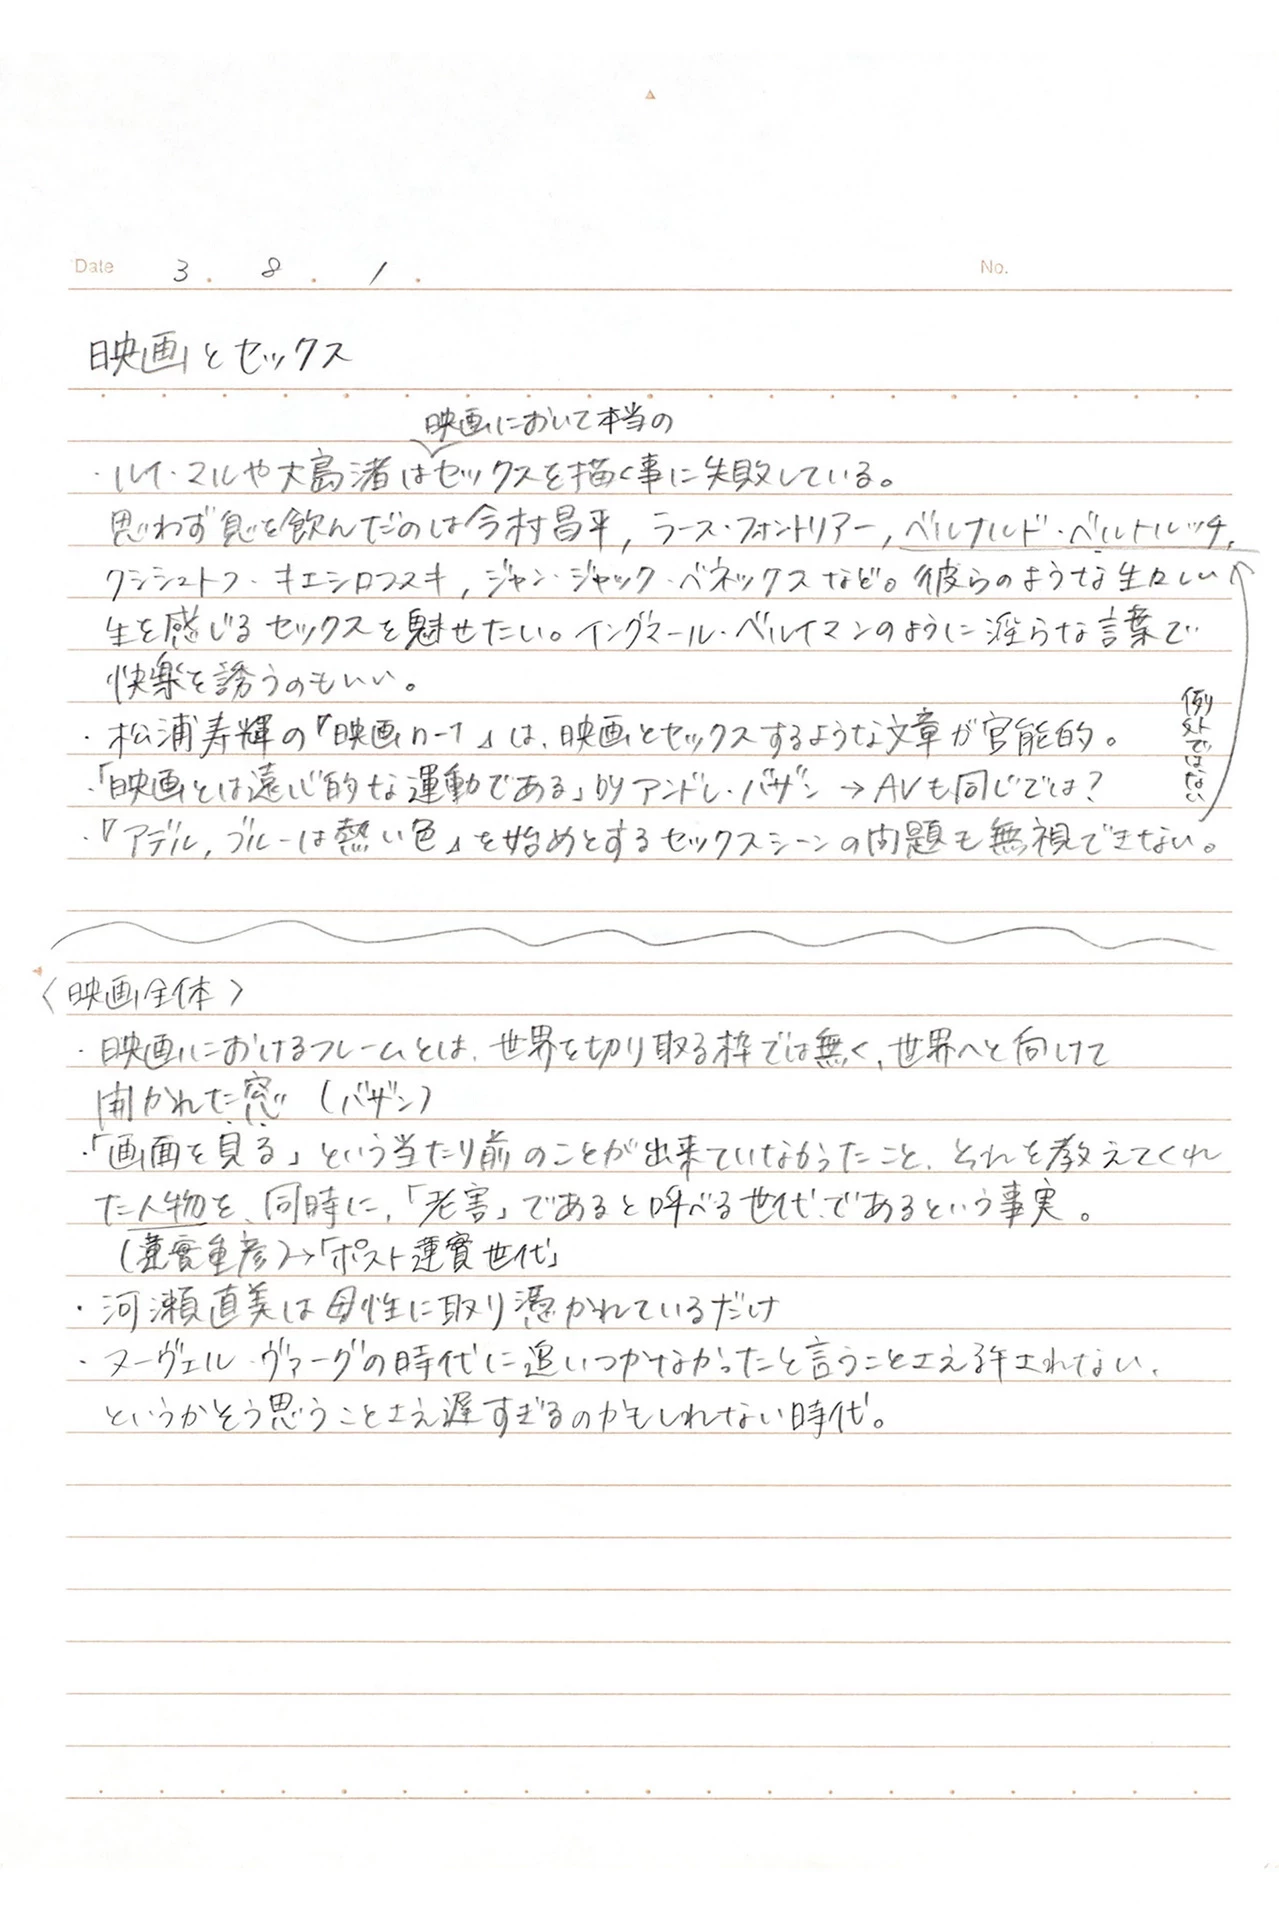 Date 3. 8. 1. No.
映画とセックス
映画において本当の
・ルイ・マルや大島渚はセックスを描く事に失敗している。
思わず息を飲んだのは今村昌平, ラース・フォントリアー, ベルナルド・ベルトルッチ,
クシシュトフ・キエシロフスキ, ジャン・ジャック・ベネックスなど。彼らのような生々しい
生を感じるセックスを魅せたい。イングマール・ベルイマンのように淫らな言葉で
快楽を誘うのもいい。
・松浦寿輝の『映画n-1』は、映画とセックスするような文章が官能的。
・「映画とは遠心的な運動である」byアンドレ・バザン → AVも同じでは?
・『アデル, ブルーは熱い色』を始めとするセックスシーンの問題も無視できない。
例外ではない
〈映画全体〉
・映画におけるフレームとは、世界を切り取る枠では無く、世界へと向けて
開かれた窓 (バザン)
・「画面を見る」という当たり前のことが出来ていなかったこと、それを教えてくれ
た人物を、同時に、「老害」であると呼べる世代であるという事実。
(蓮實重彦)→「ポスト蓮實世代」
・河瀬直美は母性に取り憑かれているだけ
・ヌーヴェル・ヴァーグの時代に追いつかなかったと言うことさえ許されない、
というかそう思うことさえ遅すぎるのかもしれない時代。